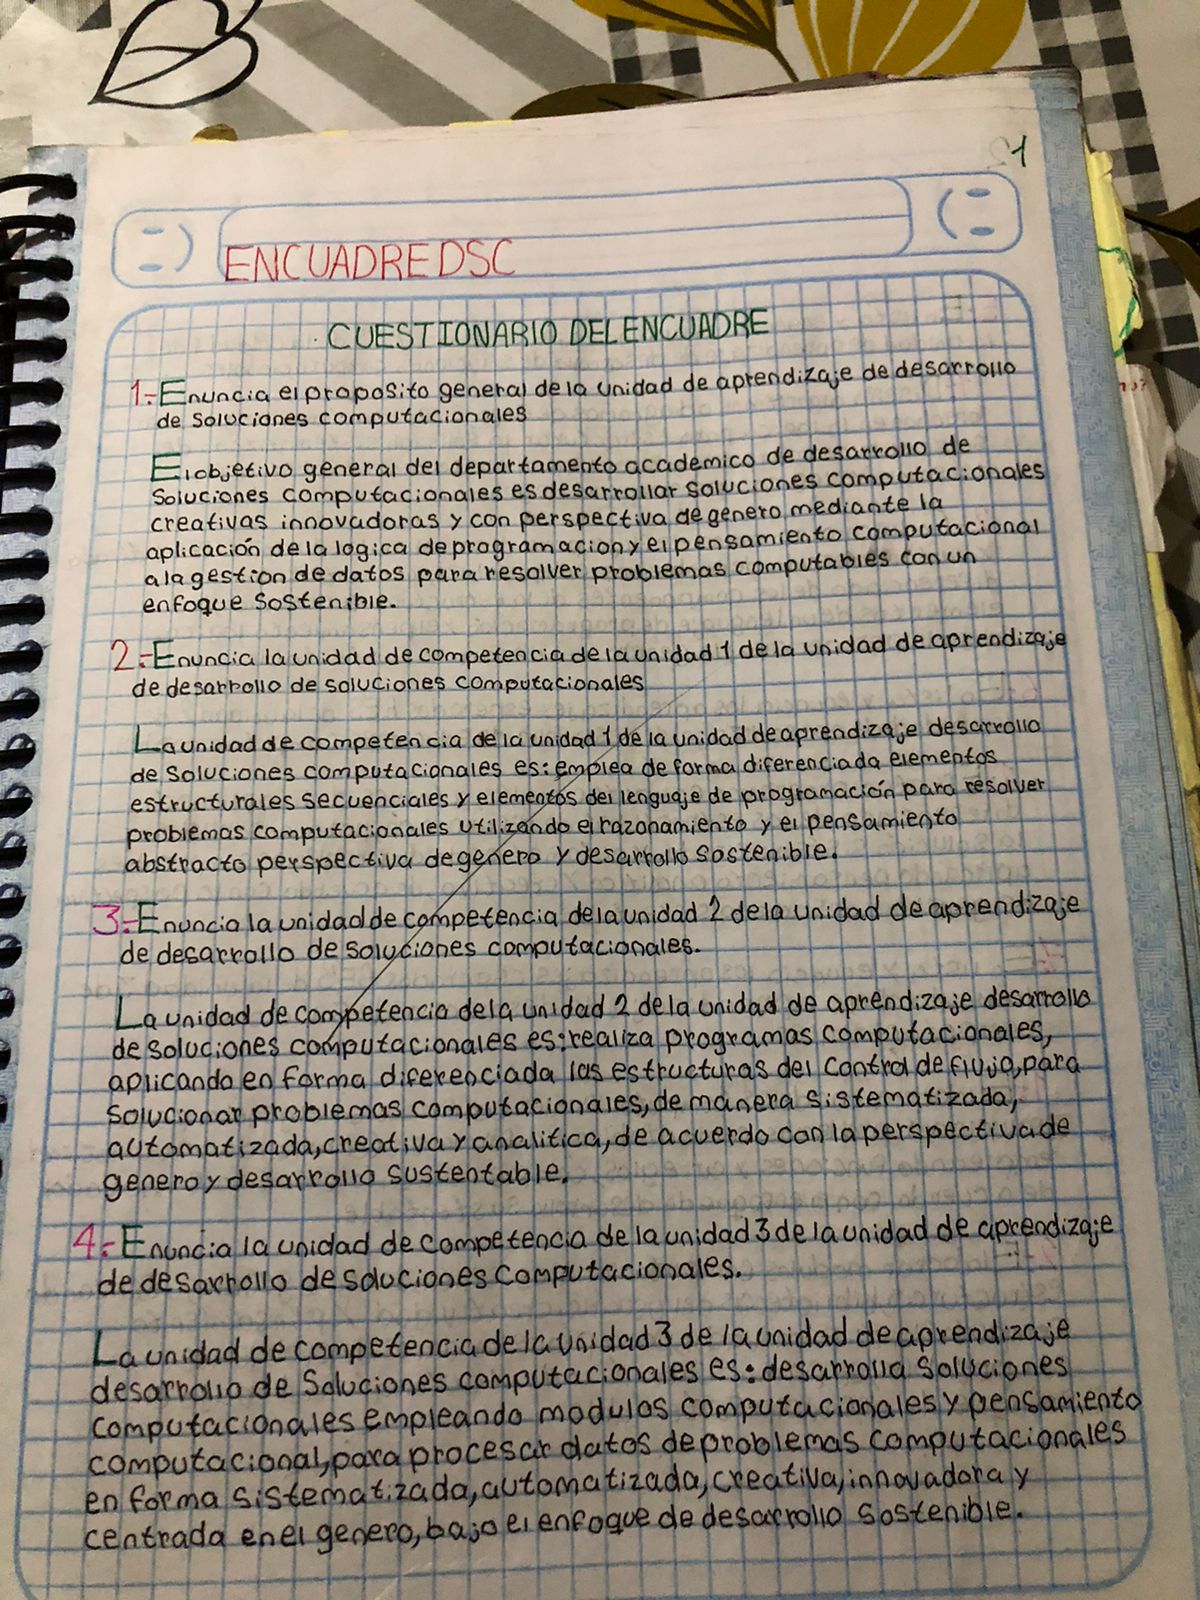 1
ENCUADRE DSC
CUESTIONARIO DEL ENCUADRE
1.- Enuncia el proposito general de la unidad de aprendizaje de desarrollo
de soluciones computacionales
El objetivo general del departamento academico de desarrollo de
soluciones computacionales es desarrollar soluciones computacionales
creativas innovadoras y con perspectiva de genero mediante la
aplicación de la logica de programacion y el pensamiento computacional
a la gestion de datos para resolver problemas computables con un
enfoque sostenible.
2.- Enuncia la unidad de competencia de la unidad 1 de la unidad de aprendizaje
de desarrollo de soluciones computacionales
La unidad de competencia de la unidad 1 de la unidad de aprendizaje desarrollo
de soluciones computacionales es: emplea de forma diferenciada elementos
estructurales secuenciales y elementos del lenguaje de programación para resolver
problemas computacionales utilizando el razonamiento y el pensamiento
abstracto perspectiva de genero y desarrollo sostenible.
3.- Enuncia la unidad de competencia de la unidad 2 de la unidad de aprendizaje
de desarrollo de soluciones computacionales.
La unidad de competencia de la unidad 2 de la unidad de aprendizaje desarrollo
de soluciones computacionales es: realiza programas computacionales,
aplicando en forma diferenciada las estructuras del control de flujo, para
solucionar problemas computacionales, de manera sistematizada,
automatizada, creativa y analitica, de acuerdo con la perspectiva de
genero y desarrollo sustentable.
4.- Enuncia la unidad de competencia de la unidad 3 de la unidad de aprendizaje
de desarrollo de soluciones computacionales.
La unidad de competencia de la unidad 3 de la unidad de aprendizaje
desarrollo de soluciones computacionales es: desarrolla soluciones
computacionales empleando modulos computacionales y pensamiento
computacional, para procesar datos de problemas computacionales
en forma sistematizada, automatizada, creativa, innovadora y
centrada en el genero, bajo el enfoque de desarrollo sostenible.